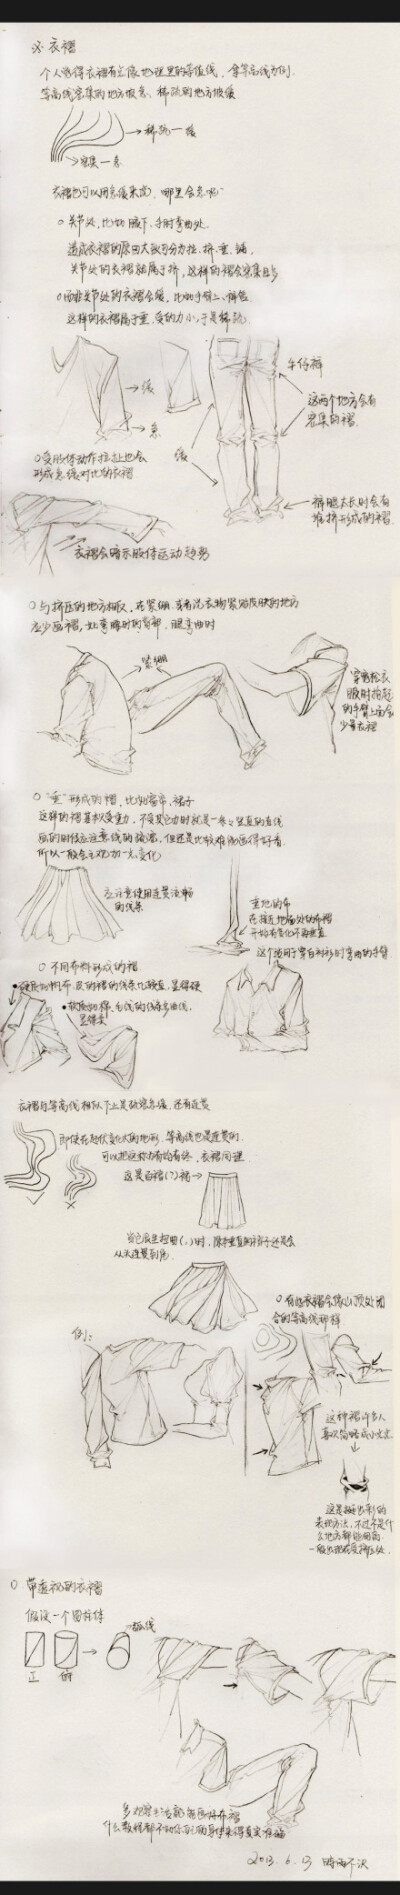 ※衣褶
个人觉得衣褶有点像地理里的等值线，拿等高线为例，
等高线密集的地方坡急、稀疏的地方坡缓
稀疏—缓
密集—急
衣褶也可以用急缓来说，哪里会急呢
○关节处，比如腋下、手肘弯曲处
造成衣褶的原因大致可分为拉、挤、垂、
关节处的衣褶就属于挤，这样的褶会密集且多
○而非关节处的衣褶会缓，比如手臂、裤管
这样的衣褶属于垂，受的力小，于是稀疏
缓
急
牛仔裤
这两个地方会有
密集的褶
缓
○变形修动作拉扯也会
形成急缓对比的衣褶
裤腿太长时会有
堆挤形成的褶
衣褶会暗示肢体运动趋势
○与挤压的地方相反，在紧绷，或者说衣物紧贴皮肤的地方
应少画褶，如弯腰时的背部，腿弯曲时
紧绷
穿宽松衣
服时抬起
的手臂上面会
少量衣褶
○“垂”形成的褶，比如窗帘、裙子
这样的褶基本只受重力，不受其它力时就是一条条竖直的直线
画的时候应注意线的疏密，但还是比较难画得好看
所以一般会主观加一点变化
应注意使用连贯流畅
的线条
垂地的布
在接近地面处的布褶
开始有变化不再垂直
这个适用于穿白衫衫时弯曲的手臂
○不同布料形成的褶
•硬质如帆布、皮的褶的线条比较直，显得硬
•软质如棉、毛线的线条多曲线，
显得柔
衣褶与等高线相似下上是疏密急缓，还有连贯
即使在起伏变化大的地形，等高线也是连贯的，
可以把这称为有始有终，衣褶同理
这是百褶（？）裙→
当它底里扭曲（，）时，除非垂直的裙子还是会
从头连贯到尾
○有些衣褶会像山顶处闭
合的等高线那样
例：
这种褶许多人
喜欢简略成小尖尖
这是挺出彩的
表现方法，不过不是什
么地方都能用的
一般出现在受挤压处
○带透视的衣褶
假设一个圆柱体
正
俯
弧线
多观察生活就能画好布褶
什么教程都不如你自己的身体来得真实准确
2013.6.13